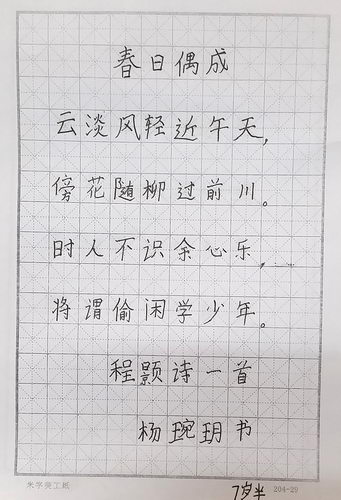 春日偶成
云淡风轻近午天,
傍花随柳过前川。
时人不识余心乐,
将谓偷闲学少年。
程颢诗一首
杨琬玥书
朱字奕工纸 7岁半 204-29